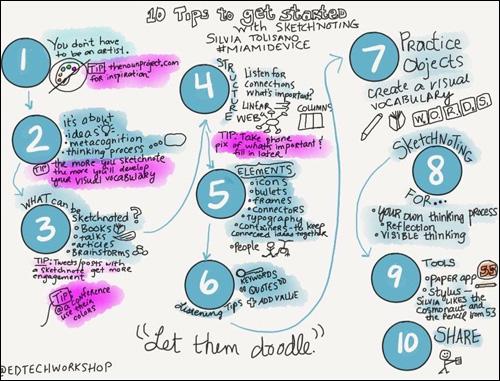 10 Tips to get started
with SKETCHNOTING
SILVIA TOLISANO
#MIAMIDEVICE
1
You don't have
to be an artist.
TIP thenounproject.com
for inspiration
2
it's about
• ideas
• metacognition
• thinking process
TIP the more you sketchnote
the more you'll develop
your visual vocabulary
3
WHAT can be
sketchnoted?
• Books
• talks
• articles
• Brainstorms
TIP: Tweets/posts with
a sketchnote get more
engagement
TIP:
@ a conference
use their
colors
4
STRUCTURE
Listen for
connections
What's important?
LINEAR
WEB
COLUMNS
TIP: Take phone
pix of what's important!
fill in later
5
ELEMENTS
• icons
• bullets
• frames
• connectors
• typography
• containers - to keep
connected ideas together
• People
6
Listening Tips
KEYWORDS
or QUOTES
+ ADD VALUE
7
Practice
Objects
create a visual
vocabulary
WORDS
SKETCHNOTING
8
FOR...
• your own thinking process
• Reflection
• VISIBLE thinking
9
TOOLS
• paper app
• stylus -
SILVIA LIKES the
cosmonaut and
the Pencil from 53
10
SHARE
"Let them doodle."
@EDTECHWORKSHOP